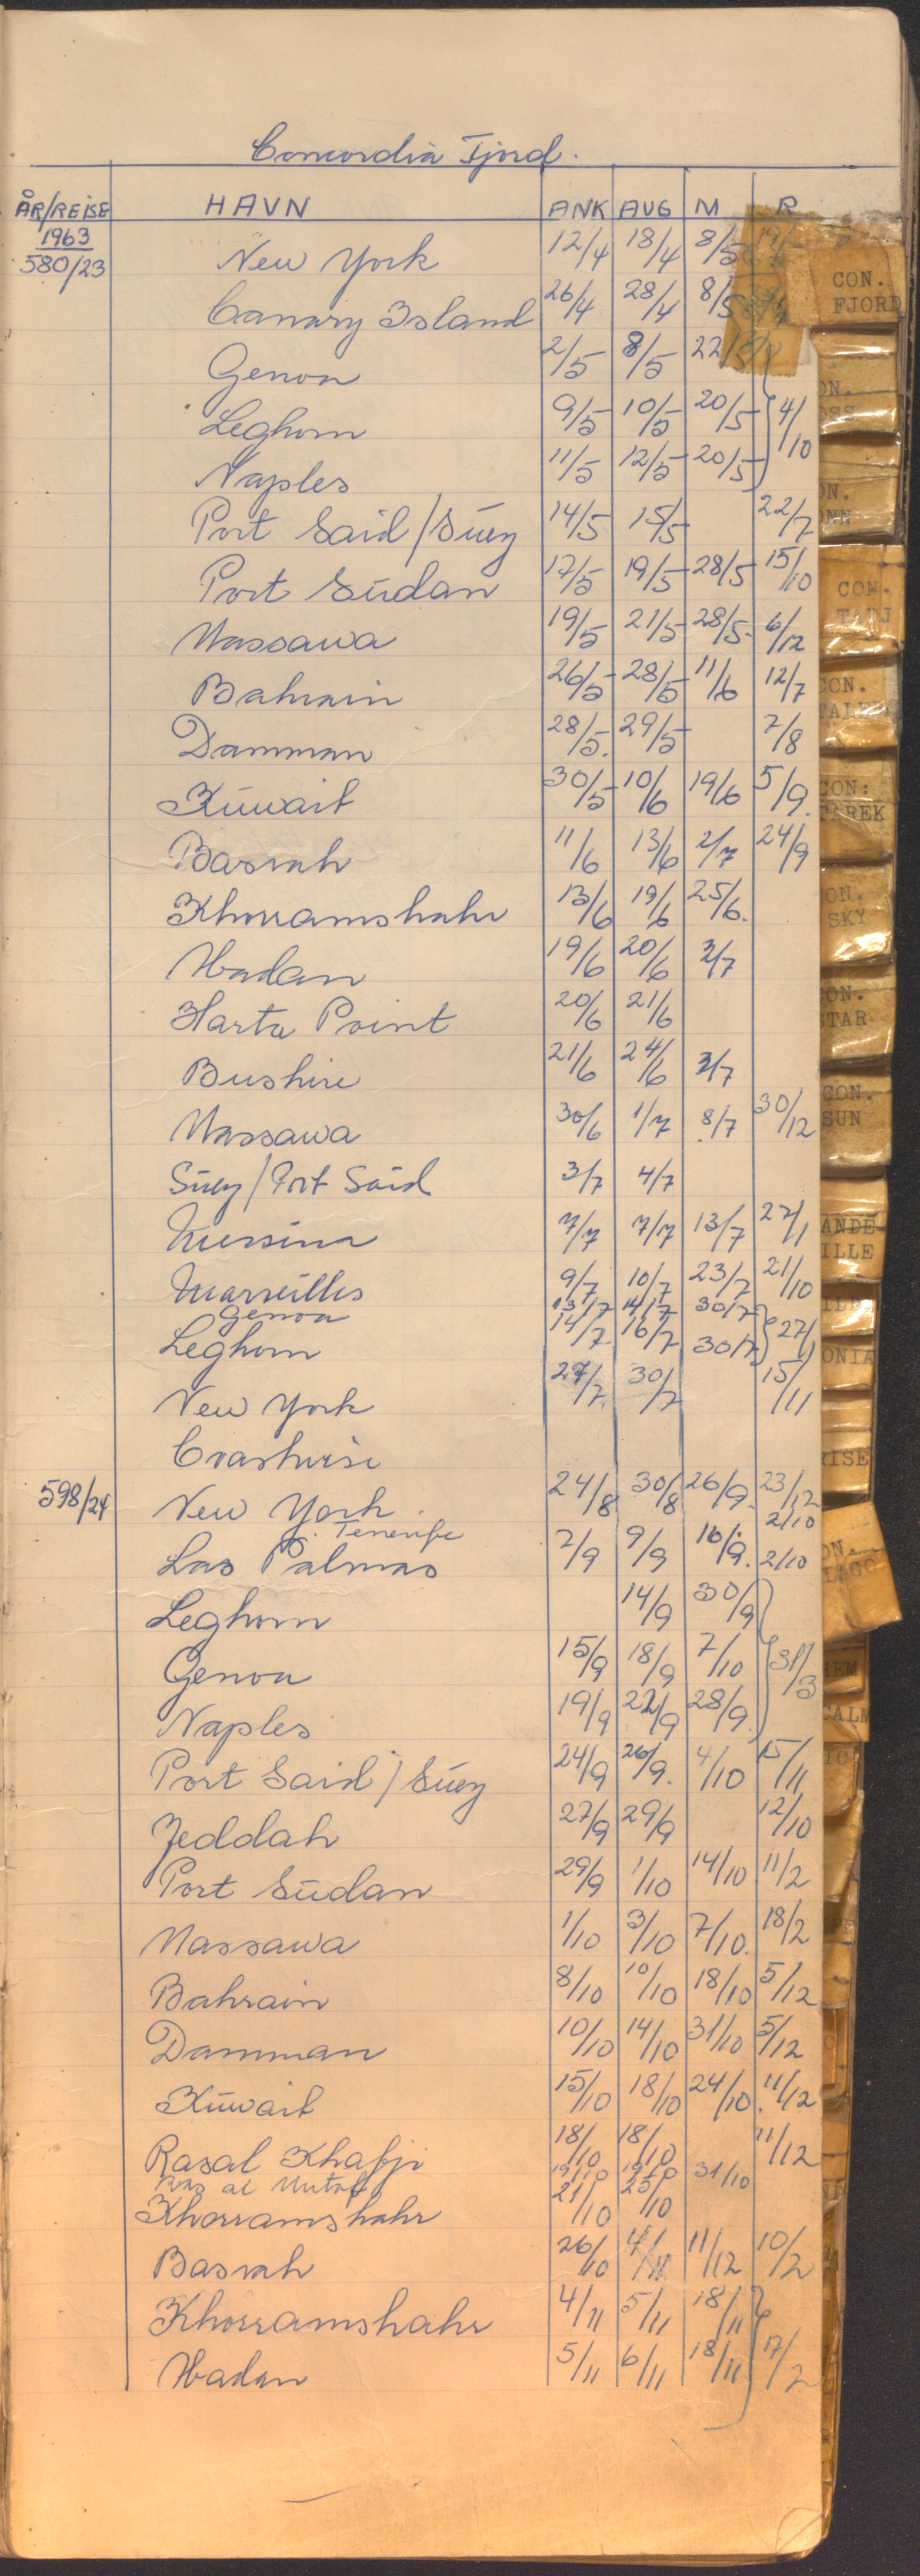 Concordia Fjord.
ÅR/REISE HAVN ANK AVG M R
1963
580/23 New York 12/4 18/4 8/5
Canary Island 26/4 28/4 8/5
Genoa 2/5 8/5 22/5
Leghorn 9/5 10/5 20/5 4/10
Naples 11/5 12/5 20/5
Port Said/Suez 14/5 15/5 22/7
Port Sŭdan 17/5 19/5 28/5 15/10
Massawa 19/5 21/5 28/5 6/12
Bahrain 26/5 28/5 11/6 12/7
Damman 28/5. 29/5 7/8
Kŭwait 30/5 10/6 19/6 5/9.
Basrah 11/6 13/6 2/7 24/9
Khorramshahr 13/6 19/6 25/6.
Abadan 19/6 20/6 2/7
Harta Point 20/6 21/6
Bushire 21/6 24/6 2/7
Massawa 30/6 1/7 8/7 30/12
Sŭez/Port Said 3/7 4/7
Mersina 7/7 7/7 13/7 27/1
Marseilles 9/7 10/7 23/7 21/10
Genoa 13/7 14/7 30/7
Leghorn 14/7 16/7 30/7 27/1
New York 27/7. 30/7 15/11
Coastwise
598/24 New York 24/8 30/8 26/9. 23/12
Tenerife 2/10
Las Palmas 7/9 9/9 16/9. 2/10
Leghorn 14/9 30/9
Genoa 15/9 18/9 7/10 31/3
Naples 19/9 22/9 28/9
Port Said/Sŭez 24/9 26/9. 4/10 15/11
Jeddah 27/9 29/9 12/10
Port Sŭdan 29/9 1/10 14/10 11/2
Massawa 1/10 3/10 7/10. 18/2
Bahrain 8/10 10/10 18/10 5/12
Damman 10/10 14/10 31/10 5/12
Kŭwait 15/10 18/10 24/10. 11/12
Rasal Khafji 18/10 18/10 11/12
Ras al 19/10 19/10 31/10
Khorramshahr 21/10 25/10
Basrah 26/10 4/11 11/12 10/2
Khorramshahr 4/11 5/11 18/11
Abadan 5/11 6/11 18/11 17/2
CON.
FJORD
CON.
TADJ
CON.
CON:
TAREK
CON.
SKY
CON.
STAR
CON.
SUN